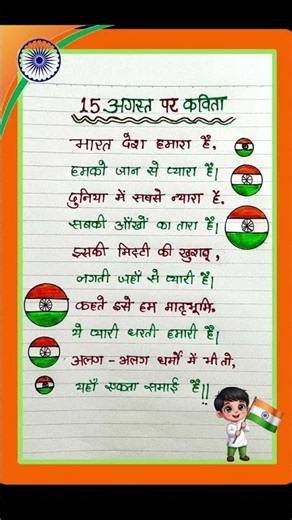 15. अगस्त पर कविता
भारत देश हमारा है,
हमको जान से प्यारा है।
दुनिया में सबसे न्यारा है,
सबकी आँखों का तारा है।
इसकी मिट्टी की खुशबू,
लगती जहाँ से प्यारी है।
कहते इसे हम मातृभूमि,
ये प्यारी धरती हमारी है।
अलग - अलग धर्मों में भी तो,
यहाँ एकता समाई है।।